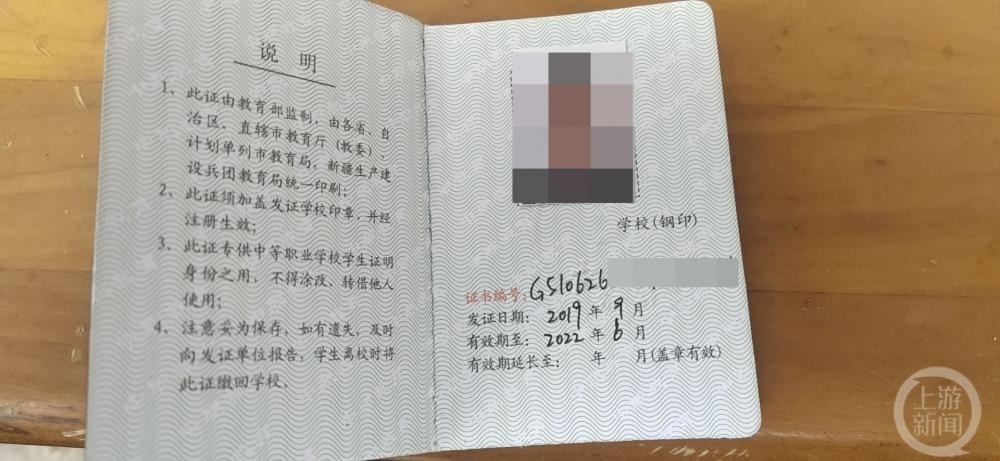 说 明
1、此证由教育部监制，由各省、自
治区、直辖市教育厅（教委），
计划单列市教育局，新疆生产建
设兵团教育局统一印刷；
2、此证须加盖发证学校印章，并经
注册生效；
3、此证专供中等职业学校学生证明
身份之用，不得涂改、转借他人
使用；
4、注意妥为保存，如有遗失，及时
向发证单位报告，学生离校时将
此证缴回学校。
学校(钢印)
证书编号：G510626
发证日期：2019年9月
有效期至：2022年6月
有效期延长至： 年 月(盖章有效)
上游新闻